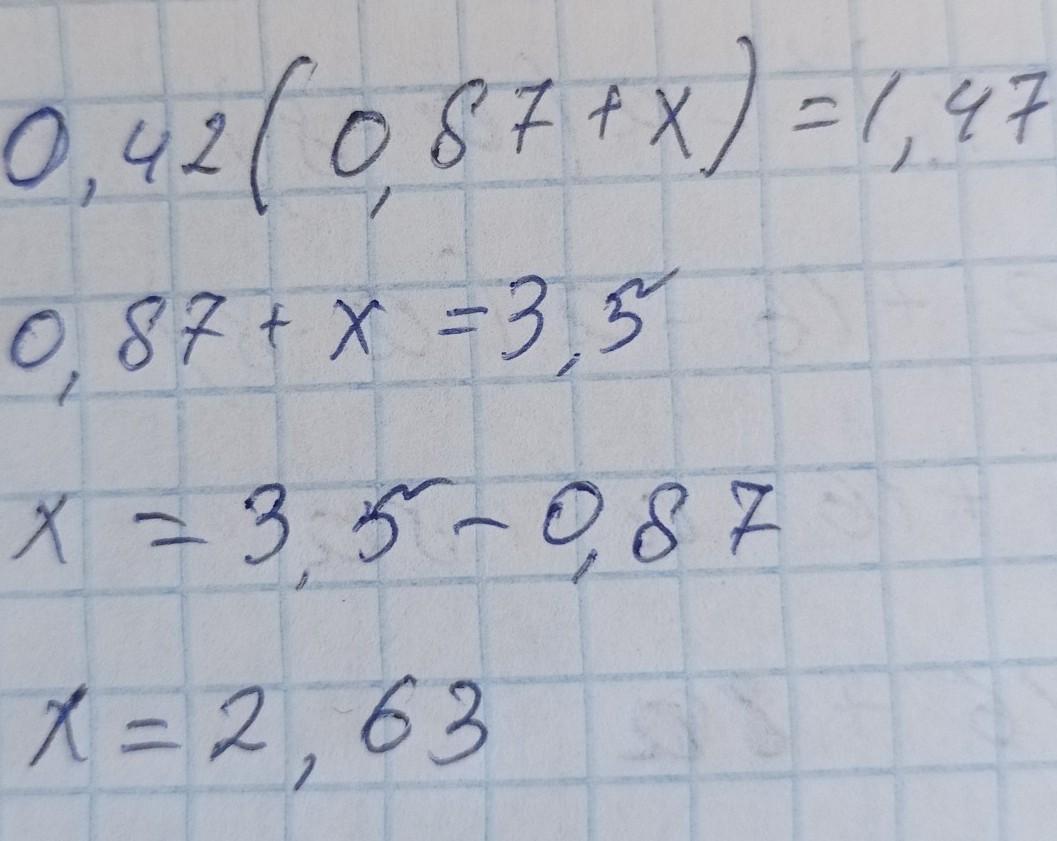 0,42(0,87+x)=1,47
0,87+x=3,5
x=3,5-0,87
x=2,63